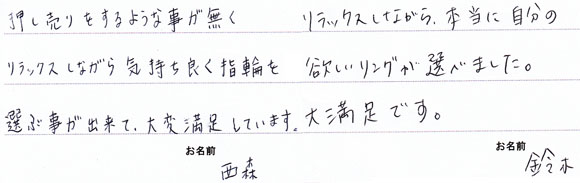 押し売りをするような事が無く
リラックスしながら気持ち良く指輪を
選ぶ事が出来て、大変満足しています。
お名前
西森
リラックスしながら、本当に自分の
欲しいリングが選べました。
大満足です。
お名前
鈴木